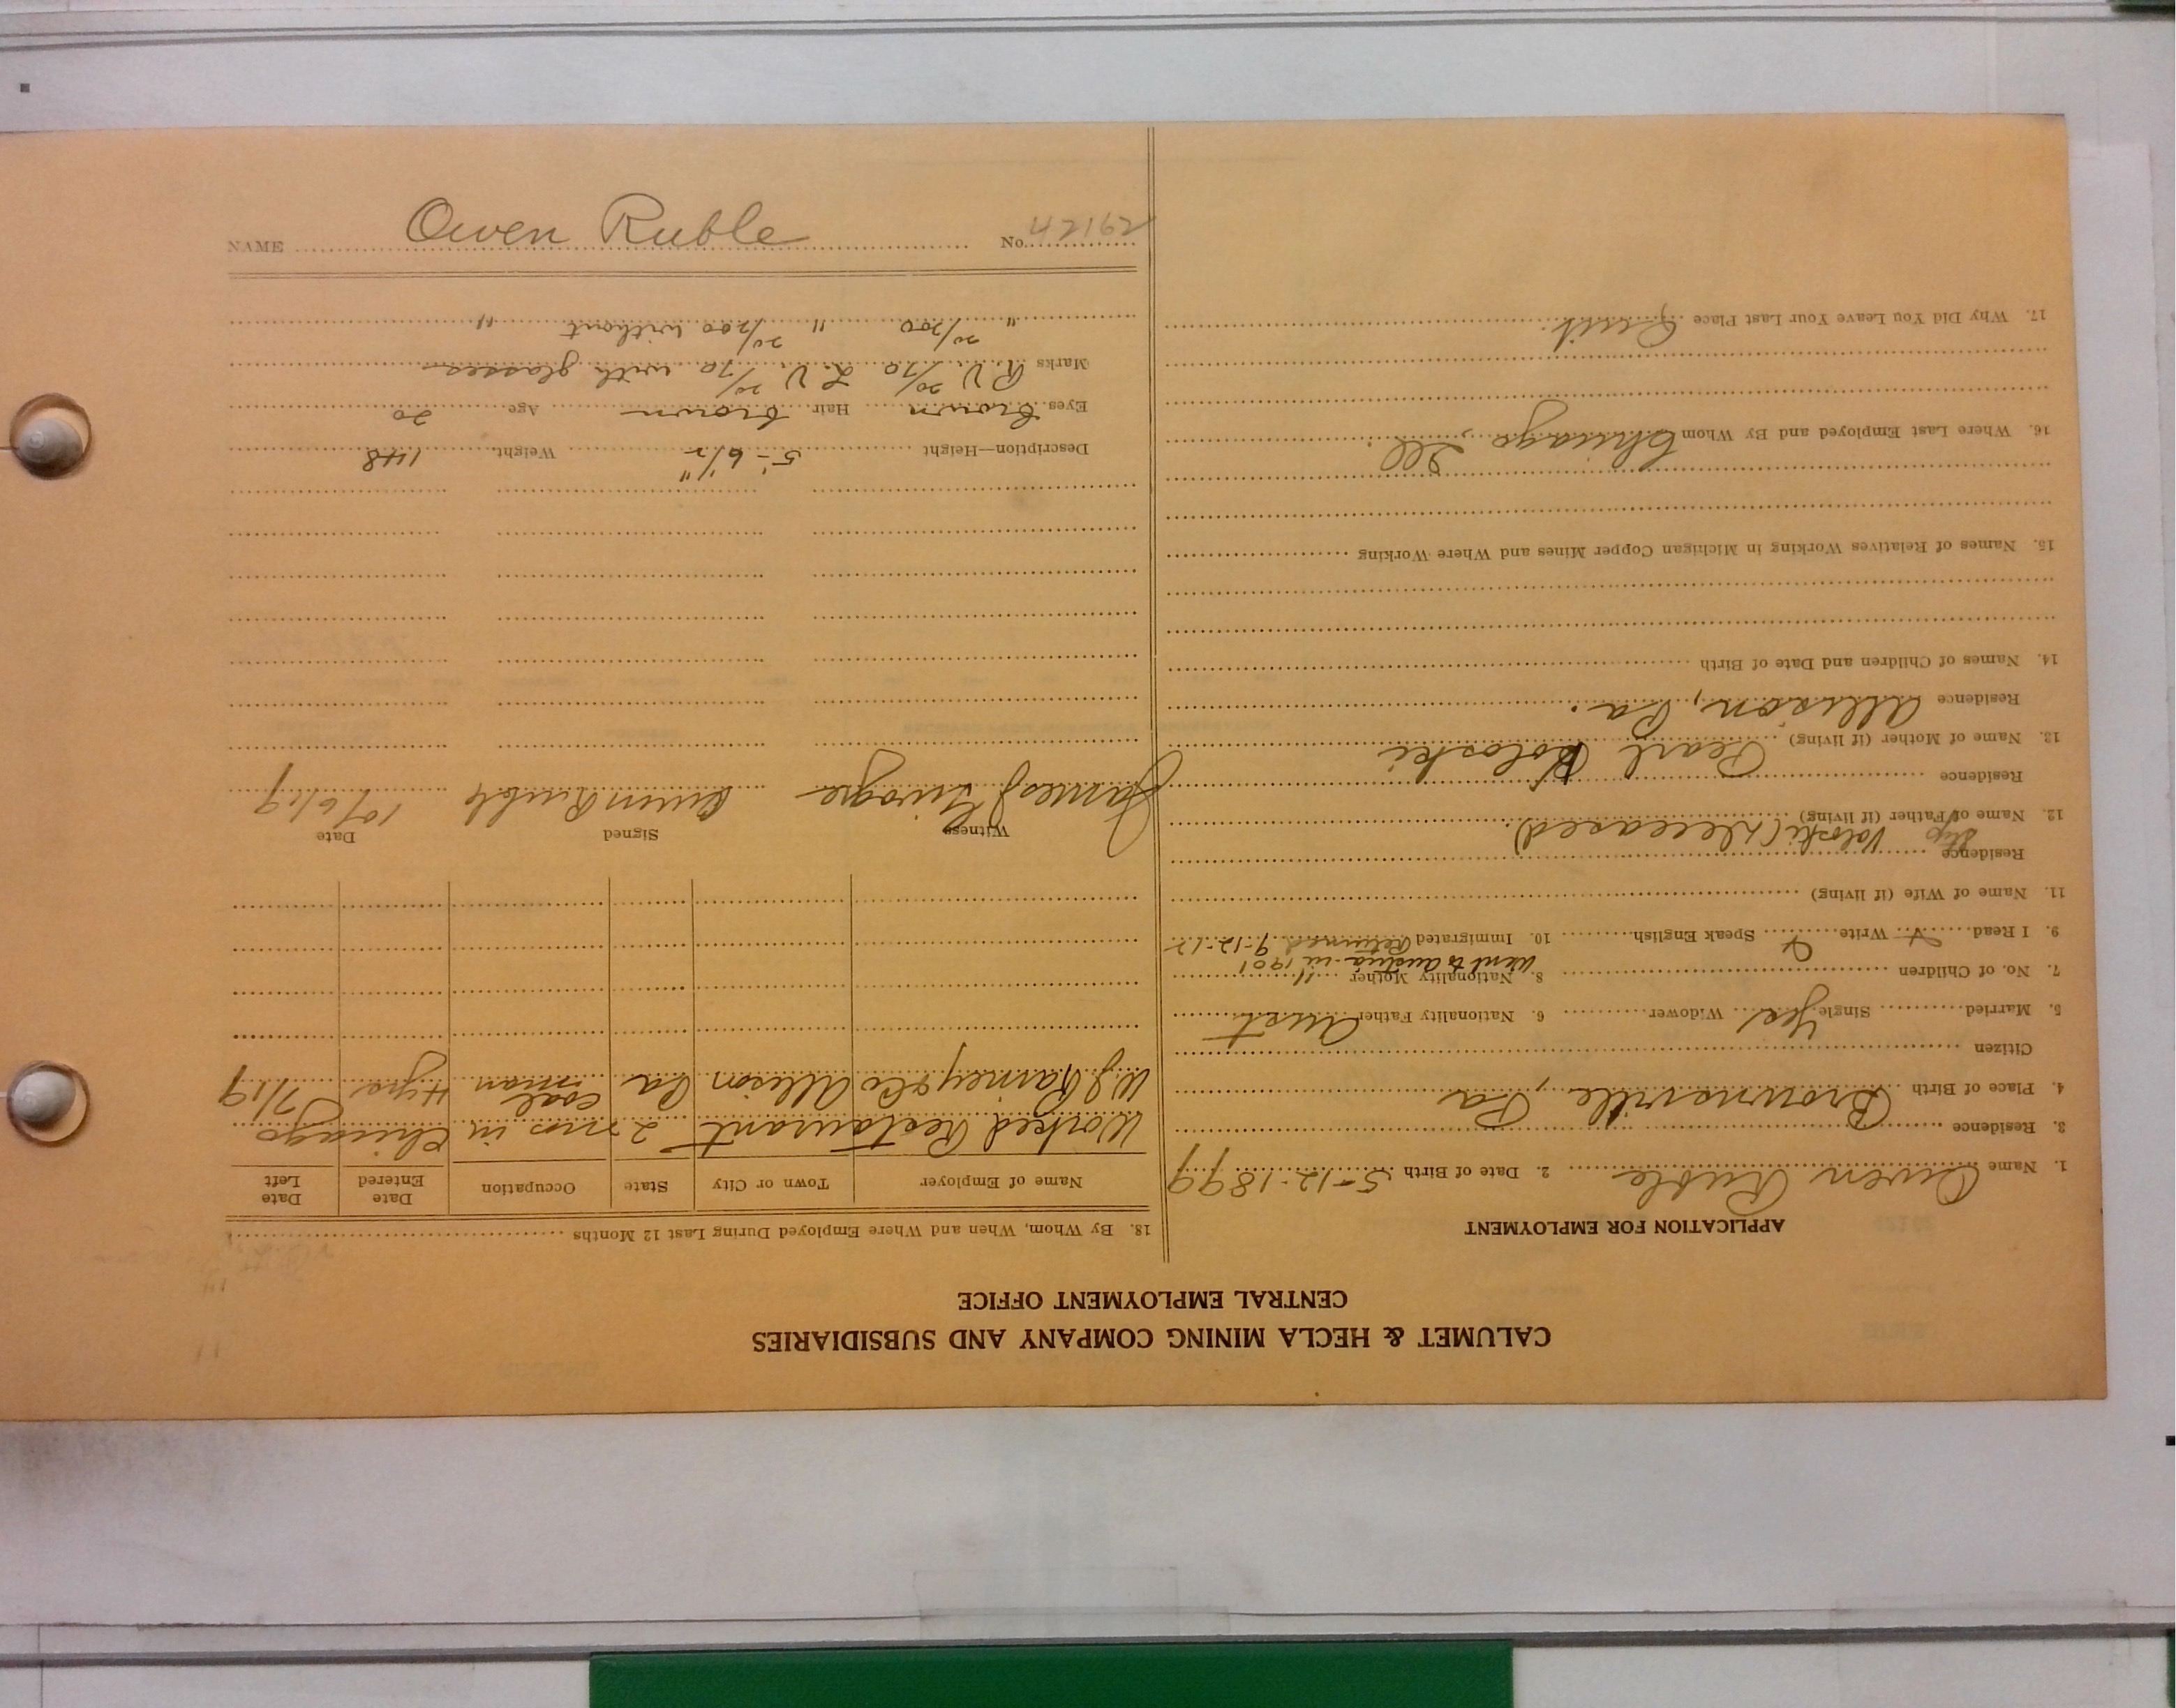 CALUMET & HECLA MINING COMPANY AND SUBSIDIARIES
CENTRAL EMPLOYMENT OFFICE
APPLICATION FOR EMPLOYMENT
1. Name Owen Ruble 2. Date of Birth 5-12-1899
3. Residence
4. Place of Birth Brownsville, Pa
Citizen
5. Married Single Yes Widower 6. Nationality Father Aust
7. No. of Children 8. Nationality Mother "
Went to Austria in 1901
9. I Read Write Speak English 10. Immigrated Returned 9-12-12
11. Name of Wife (if living)
Residence
Step Voloski (deceased)
12. Name of Father (if living)
Residence
13. Name of Mother (if living) Pearl Voloski
Residence Allison, Pa.
14. Names of Children and Date of Birth
15. Names of Relatives Working in Michigan Copper Mines and Where Working
16. Where Last Employed and By Whom Chicago, Ill.
17. Why Did You Leave Your Last Place Quit.
18. By Whom, When and Where Employed During Last 12 Months
Name of Employer Town or City State Occupation Date Entered Date Left
Worked Restaurant 2 mos in Chicago
W J Rainey & Co Allison Pa coal man 4 yrs 7/19
Witness Signed Date
James J Owen Ruble 10/6/19
Description—Height 5'-6 1/2" Weight 148
Eyes brown Hair brown Age 20
Marks R.V. 20/70 L.V. 20/70 with glasses
" 20/200 " 20/200 without "
NAME Owen Ruble No. 42162